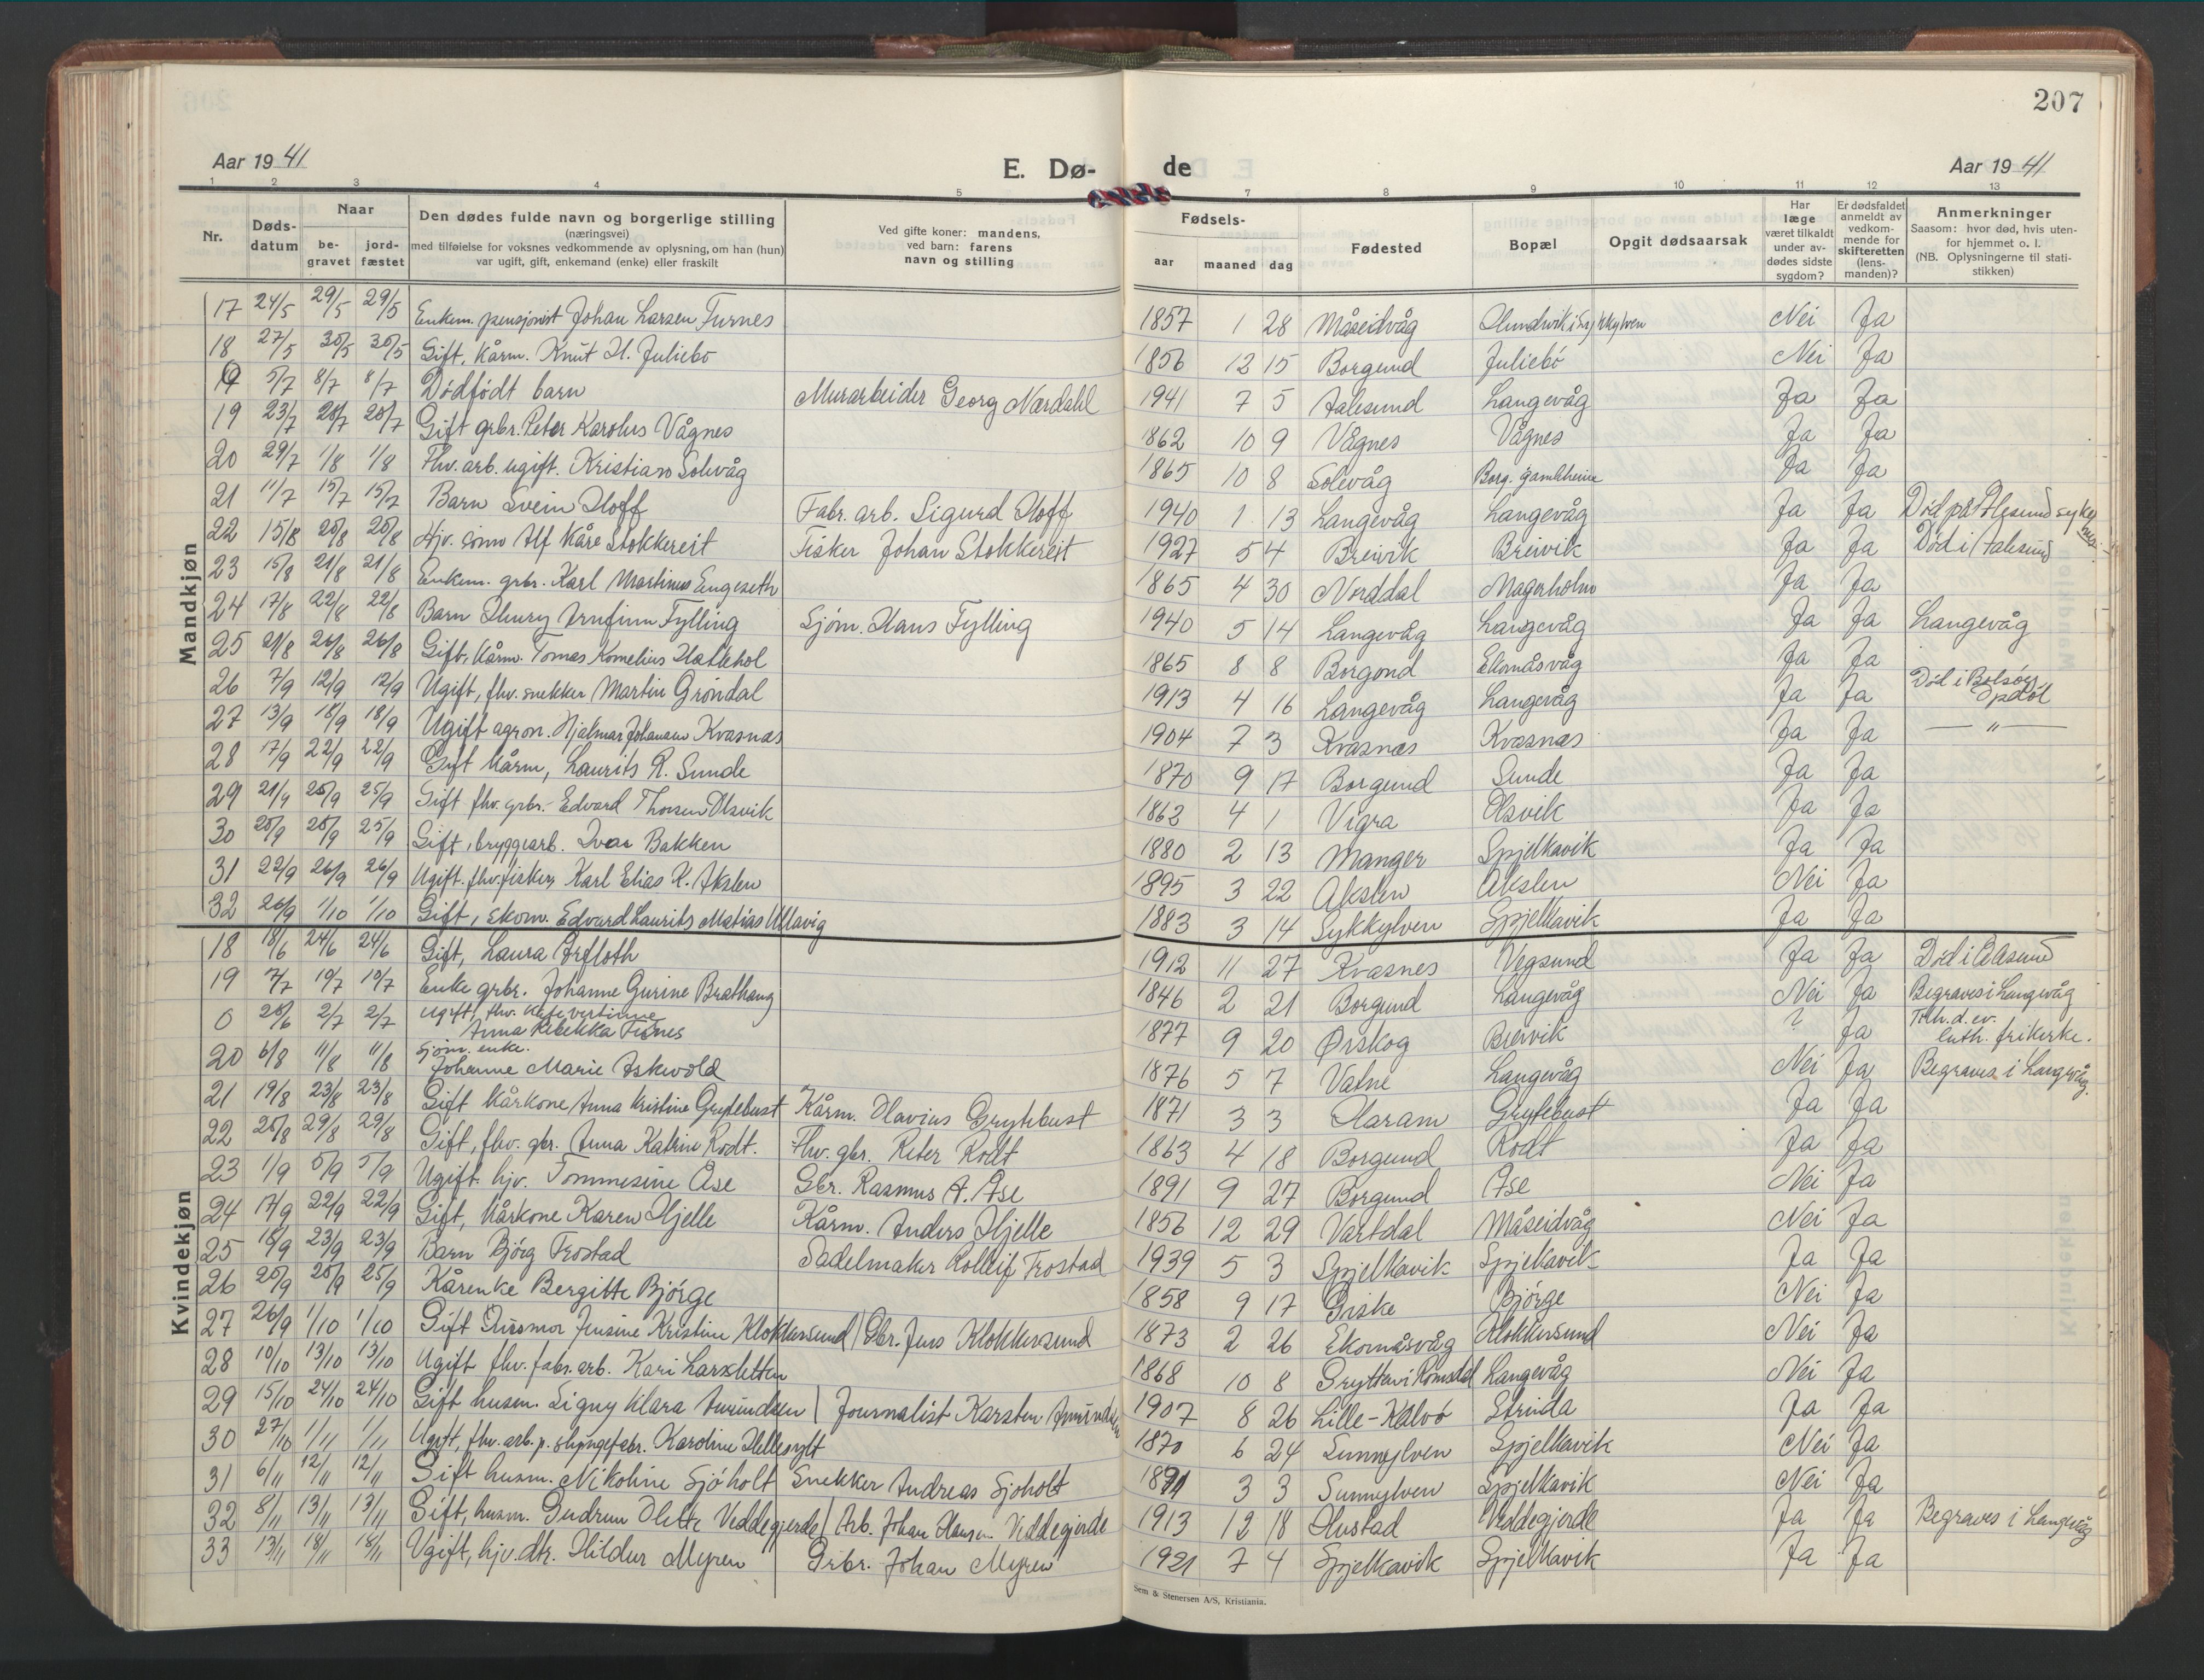 207
Aar 19 41 E. Dø- de Aar 19 41
1 2 3 4 5 7 8 9 10 11 12 13
Nr. Døds-datum Naar be-gravet jord-fæstet Den dødes fulde navn og borgerlige stilling (næringsvei) med tilføielse for voksnes vedkommende av oplysning, om han (hun) var ugift, gift, enkemand (enke) eller fraskilt Ved gifte koner: mandens, ved barn: farens navn og stilling Fødsels- aar maaned dag Fødested Bopæl Opgit dødsaarsak Har læge været tilkaldt under av-dødes sidste sygdom? Er dødsfaldet anmeldt av vedkom-mende for skifteretten (lens-manden)? Anmerkninger Saasom: hvor død, hvis uten-for hjemmet o. l. (NB. Oplysningerne til stati-stikken)
Mandkjøn
17 24/5 29/5 29/5 Enkem. pensjonist Johan Larsen Furnes 1857 1 28 Måseidvåg Nei Ja
18 27/5 30/5 30/5 Gift, kårm. Knut H. Juliebø 1856 12 15 Borgund Juliebö Nei Ja
0 5/7 8/7 8/7 Dødfödt barn Murarbeider Georg Nærdahl 1941 7 5 Aalesund Langevåg Ja Ja
19 23/7 28/7 28/7 Gift grbr. Peter Karolus Vågnes 1862 10 9 Vågnes Vågnes Ja Ja
20 29/7 1/8 1/8 Fhv. arb. ugift. Kristian Solevåg 1865 10 8 Solevåg Borg. gamleheim Ja Ja
21 11/7 15/7 15/7 Barn Svein Hoff Fabr. arb. Sigurd Hoff 1940 1 13 Langevåg Langevåg Ja Ja Död på Ålesund sykehus
22 15/8 20/8 20/8 Hjv. sönn Alf Kåre Stokkereit Fisker Johan Stokkereit 1927 5 4 Breivik Breivik Ja Ja Död i Aalesund
23 15/8 21/8 21/8 Enkem. grbr. Karl Martinus Engeseth 1865 4 30 Norddal Magerholm Ja Ja
24 17/8 22/8 22/8 Barn Henry Arnfinn Fylling Sjöm. Hans Fylling 1940 5 14 Langevåg Langevåg Ja Ja Langevåg
25 21/8 26/8 26/8 Gift, kårm. Tomas Kornelius Hattehol 1865 8 8 Borgond Ekornåsvåg Ja Ja
26 7/9 12/9 12/9 Ugift, fhv. snekker Martin Gröndal 1913 4 16 Langevåg Langevåg Ja Ja Död i Bolsöy Opdöl
27 13/9 18/9 18/9 Ugift agron. Hjalmar Johansen Kvasnes 1904 7 3 Kvasnes Kvasnes Ja Ja — " —
28 17/9 22/9 22/9 Gift kårm, Laurits R. Sunde 1870 9 17 Borgund Sunde Ja Ja
29 21/9 25/9 25/9 Gift fhv. grbr. Edvard Thorsen Olsvik 1862 4 1 Vigra Olsvik Ja Ja
30 20/9 25/9 25/9 Gift, bryggearb. Ivar Bakken 1880 2 13 Manger Spjelkavik Ja Ja
31 22/9 26/9 26/9 Ugift. fhv. fisker, Karl Elias R. Akslen 1895 3 22 Akslen Akslen Nei Ja
32 26/9 1/10 1/10 Gift, skom. Edvard Laurits Matias Ullavig 1883 3 14 Sykkylven Spjelkavik Ja Ja
Kvindekjøn
18 18/6 24/6 24/6 Gift, Laura Orfloth 1912 11 27 Kvasnes Vegsund Ja Ja Död i Ålesund
19 7/7 10/7 10/7 Enke grbr. Johanne Gurine Brathaug 1846 2 21 Borgund Langevåg Nei Ja Begraves i Langevåg
0 28/6 2/7 2/7 Ugift, fhv. kafevertinne Anna Rebekka Fisnes 1877 9 20 Ørskog Breivik ? Ja Tilh. d. ev. luth. frikirke.
20 6/8 11/8 11/8 Sjöm. enke. Johanne Marie Askvold 1876 5 7 Vatne Langevåg Nei Ja Begraves i Langevåg.
21 19/8 23/8 23/8 Gift kårkone Anna Kristine Grytebust Kårm. Olavius Grytebust 1871 3 3 Haram Grytebust Ja Ja
22 25/8 29/8 29/8 Gift, fhv. gbr. Anna Katrine Rodt. Fhv. gbr. Peter Rodt 1863 4 18 Borgund Rodt Ja Ja
23 1/9 5/9 5/9 Ugift. hjv. Tommesine Åse Gbr. Rasmus A. Åse 1891 9 27 Borgund Åse Nei Ja
24 17/9 22/9 22/9 Gift, kårkone Karen Hjelle Kårm. Anders Hjelle 1856 12 29 Vartdal Måseidvåg Nei Ja
25 18/9 23/9 23/9 Barn Björg Frostad Sadelmaker Rolleif Frostad 1939 5 3 Spjelkavik Spjelkavik Ja Ja
26 20/9 25/9 25/9 Kårenke Bergitte Björge 1858 9 17 Giske Björge Nei Ja
27 26/9 1/10 1/10 Gift Jensine Kristine Klokkersund Gbr. Jens Klokkersund 1873 2 26 Ekornåsvåg Klokkersund Nei Ja
28 10/10 13/10 13/10 Ugift fhv. fabr. arb. Kari Larsletten 1868 10 8 Grytten i Romsdal Langevåg Nei Ja
29 15/10 24/10 24/10 Gift husm. Signy Klara Amundsen Journalist Karsten Amundsen 1907 8 26 Lille-Kalvö Strinda Ja Ja
30 27/10 1/11 1/11 Ugift, fhv. arb. p. slyngefabr. Karoline Hellesylt 1870 6 24 Sunnylven Spjelkavik Nei Ja
31 6/11 12/11 12/11 Gift husm. Nikoline Sjöholt Snekker Andreas Sjöholt 1891 3 3 Sunnylven Spjelkavik Nei Ja
32 8/11 13/11 13/11 Gift, husm. Gudrun Olette Veddegjerde Arb. Johan Hansen Veddegjerde 1913 12 18 Hustad Veddegjerde Ja Ja Begraves i Langevåg
33 13/11 18/11 18/11 Ugift, hjv. dtr. Hildur Myren Grbr. Johan Myren 1921 7 4 Spjelkavik Spjelkavik Ja Ja
Sem & Stenersen A/S, Kristiania.